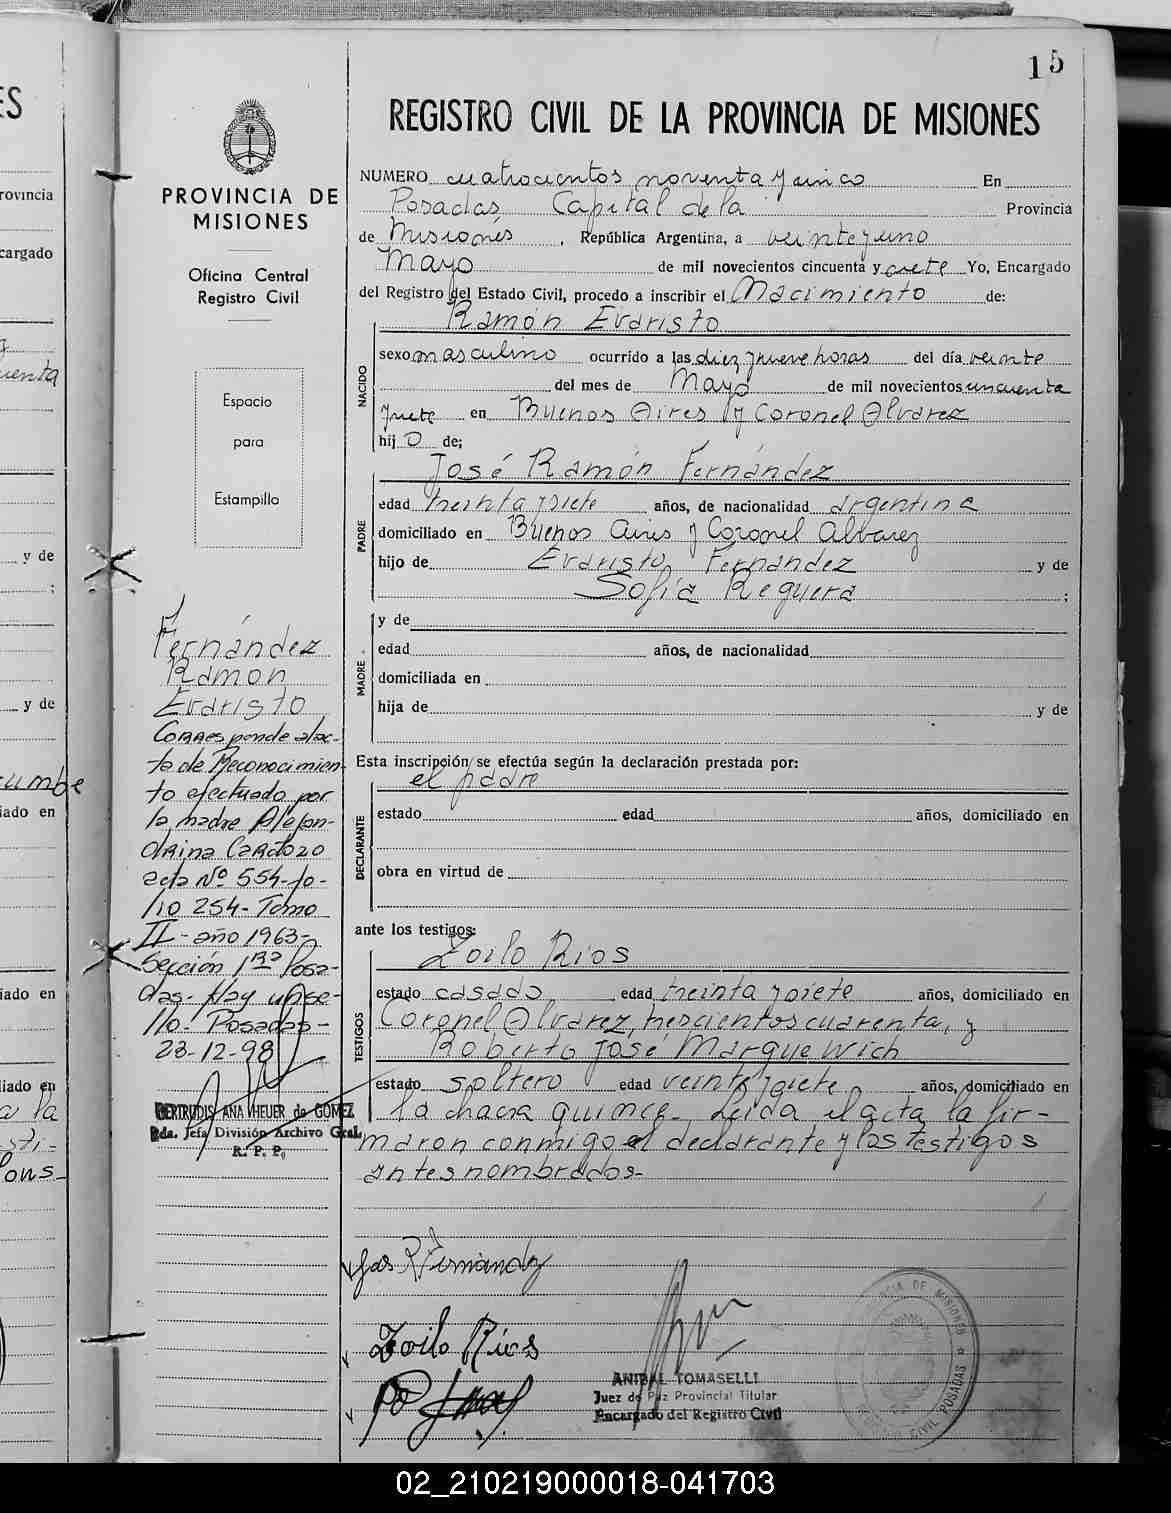 15
REGISTRO CIVIL DE LA PROVINCIA DE MISIONES
PROVINCIA DE
MISIONES
Oficina Central
Registro Civil
Espacio
para
Estampilla
Fernández
Ramón
Evaristo
Corresponde al ac-
ta de Reconocimien-
to efectuado por
la madre Alejan-
drina Cardozo
acta Nº 554-fo-
lio 254- Tomo
II - año 1963-
Sección 1ra Posa-
das- Hay un se-
llo- Posadas-
23-12-98
GERTRUDIS ANA HEUER de GOMEZ
Pda. Jefa División Archivo Gral.
R. P. P.
NUMERO cuatrocientos noventa y cinco En
Posadas Capital de la Provincia
de Misiones, República Argentina, a veinteyuno
Mayo de mil novecientos cincuenta y siete Yo, Encargado
del Registro del Estado Civil, procedo a inscribir el Nacimiento de:
Ramón Evaristo
NACIDO
sexo masculino ocurrido a las diez y nueve horas del día veinte
del mes de Mayo de mil novecientos cincuenta
y siete en Buenos Aires y Coronel Alvarez
hij o de;
José Ramón Fernández
PADRE
edad treinta y siete años, de nacionalidad argentina
domiciliado en Buenos Aires y Coronel Alvarez
hijo de Evaristo Fernández y de
Sofía Reguera ;
MADRE
y de
edad años, de nacionalidad
domiciliada en
hija de y de
Esta inscripción se efectúa según la declaración prestada por:
el padre
DECLARANTE
estado edad años, domiciliado en
obra en virtud de
ante los testigos:
Zoilo Rios
TESTIGOS
estado casado edad treinta y siete años, domiciliado en
Coronel Alvarez, trescientos cuarenta, y
Roberto José Marquewich
estado soltero edad veinte y siete años, domiciliado en
la chacra quince. Leída el acta la fir-
maron conmigo el declarante y los testigos
antes nombrados-
Jose R Fernandez
Zoilo Rios
ANIBAL TOMASELLI
Juez de Paz Provincial Titular
Encargado del Registro Civil
PROVINCIA DE MISIONES
REGISTRO CIVIL POSADAS
ES
rovincia
cargado
uenta
y de
;
y de
iado en
iado en
iado en
a la
sti-
ons-
02_210219000018-041703